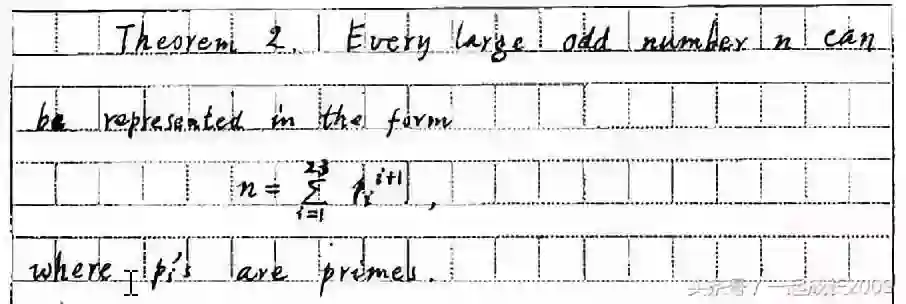 Theorem 2. Every large odd number n can
be represented in the form
n = \sum_{i=1}^{23} p_i^{i+1},
where p_i's are primes.